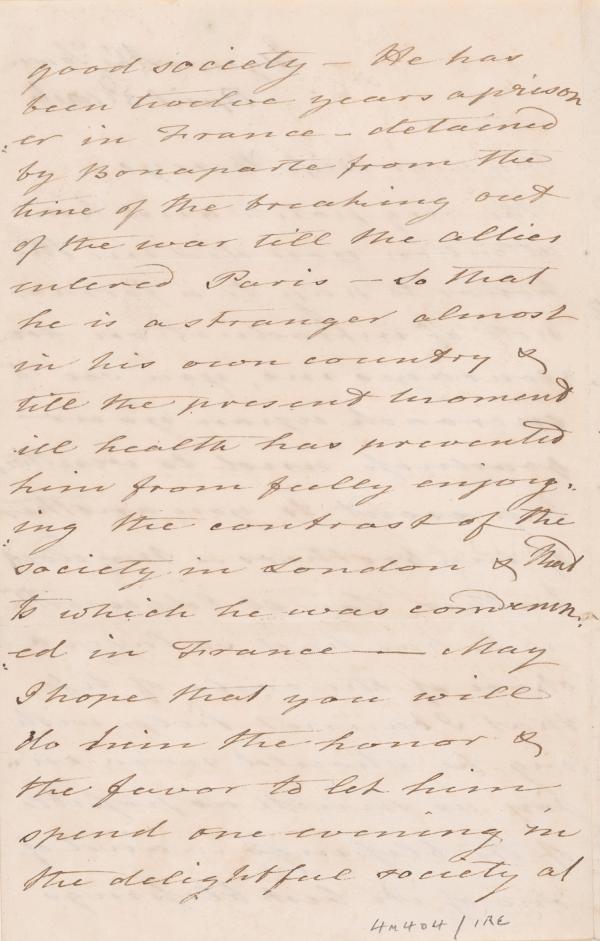 good society – He has
been twelve years a prison
:er in France – detained
by Bonaparte from the
time of the breaking out
of the war till the allies
entered Paris – so that
he is a stranger almost
in his own country &
till the present moment
ill health has prevented
him from fully enjoy:
:ing the contrast of the
society in London & that
to which he was condemn:
:ed in France — May
I hope that you will
do him the honor &
the favor to let him
spend one evening in
the delightful society at
4M404/IRE